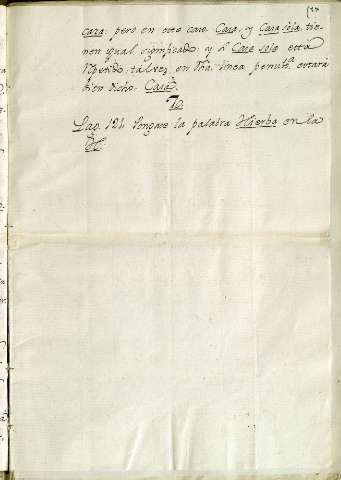 cara: pero en este caso Cara, y Cara sòla, tie-
nen igual significado, y si Cara sola esta
repetido, talvez, en dha. linea penult.ª estará
bien dicho: Cara.
Pag. 124 Pongase la palabra Hierba en la
H.